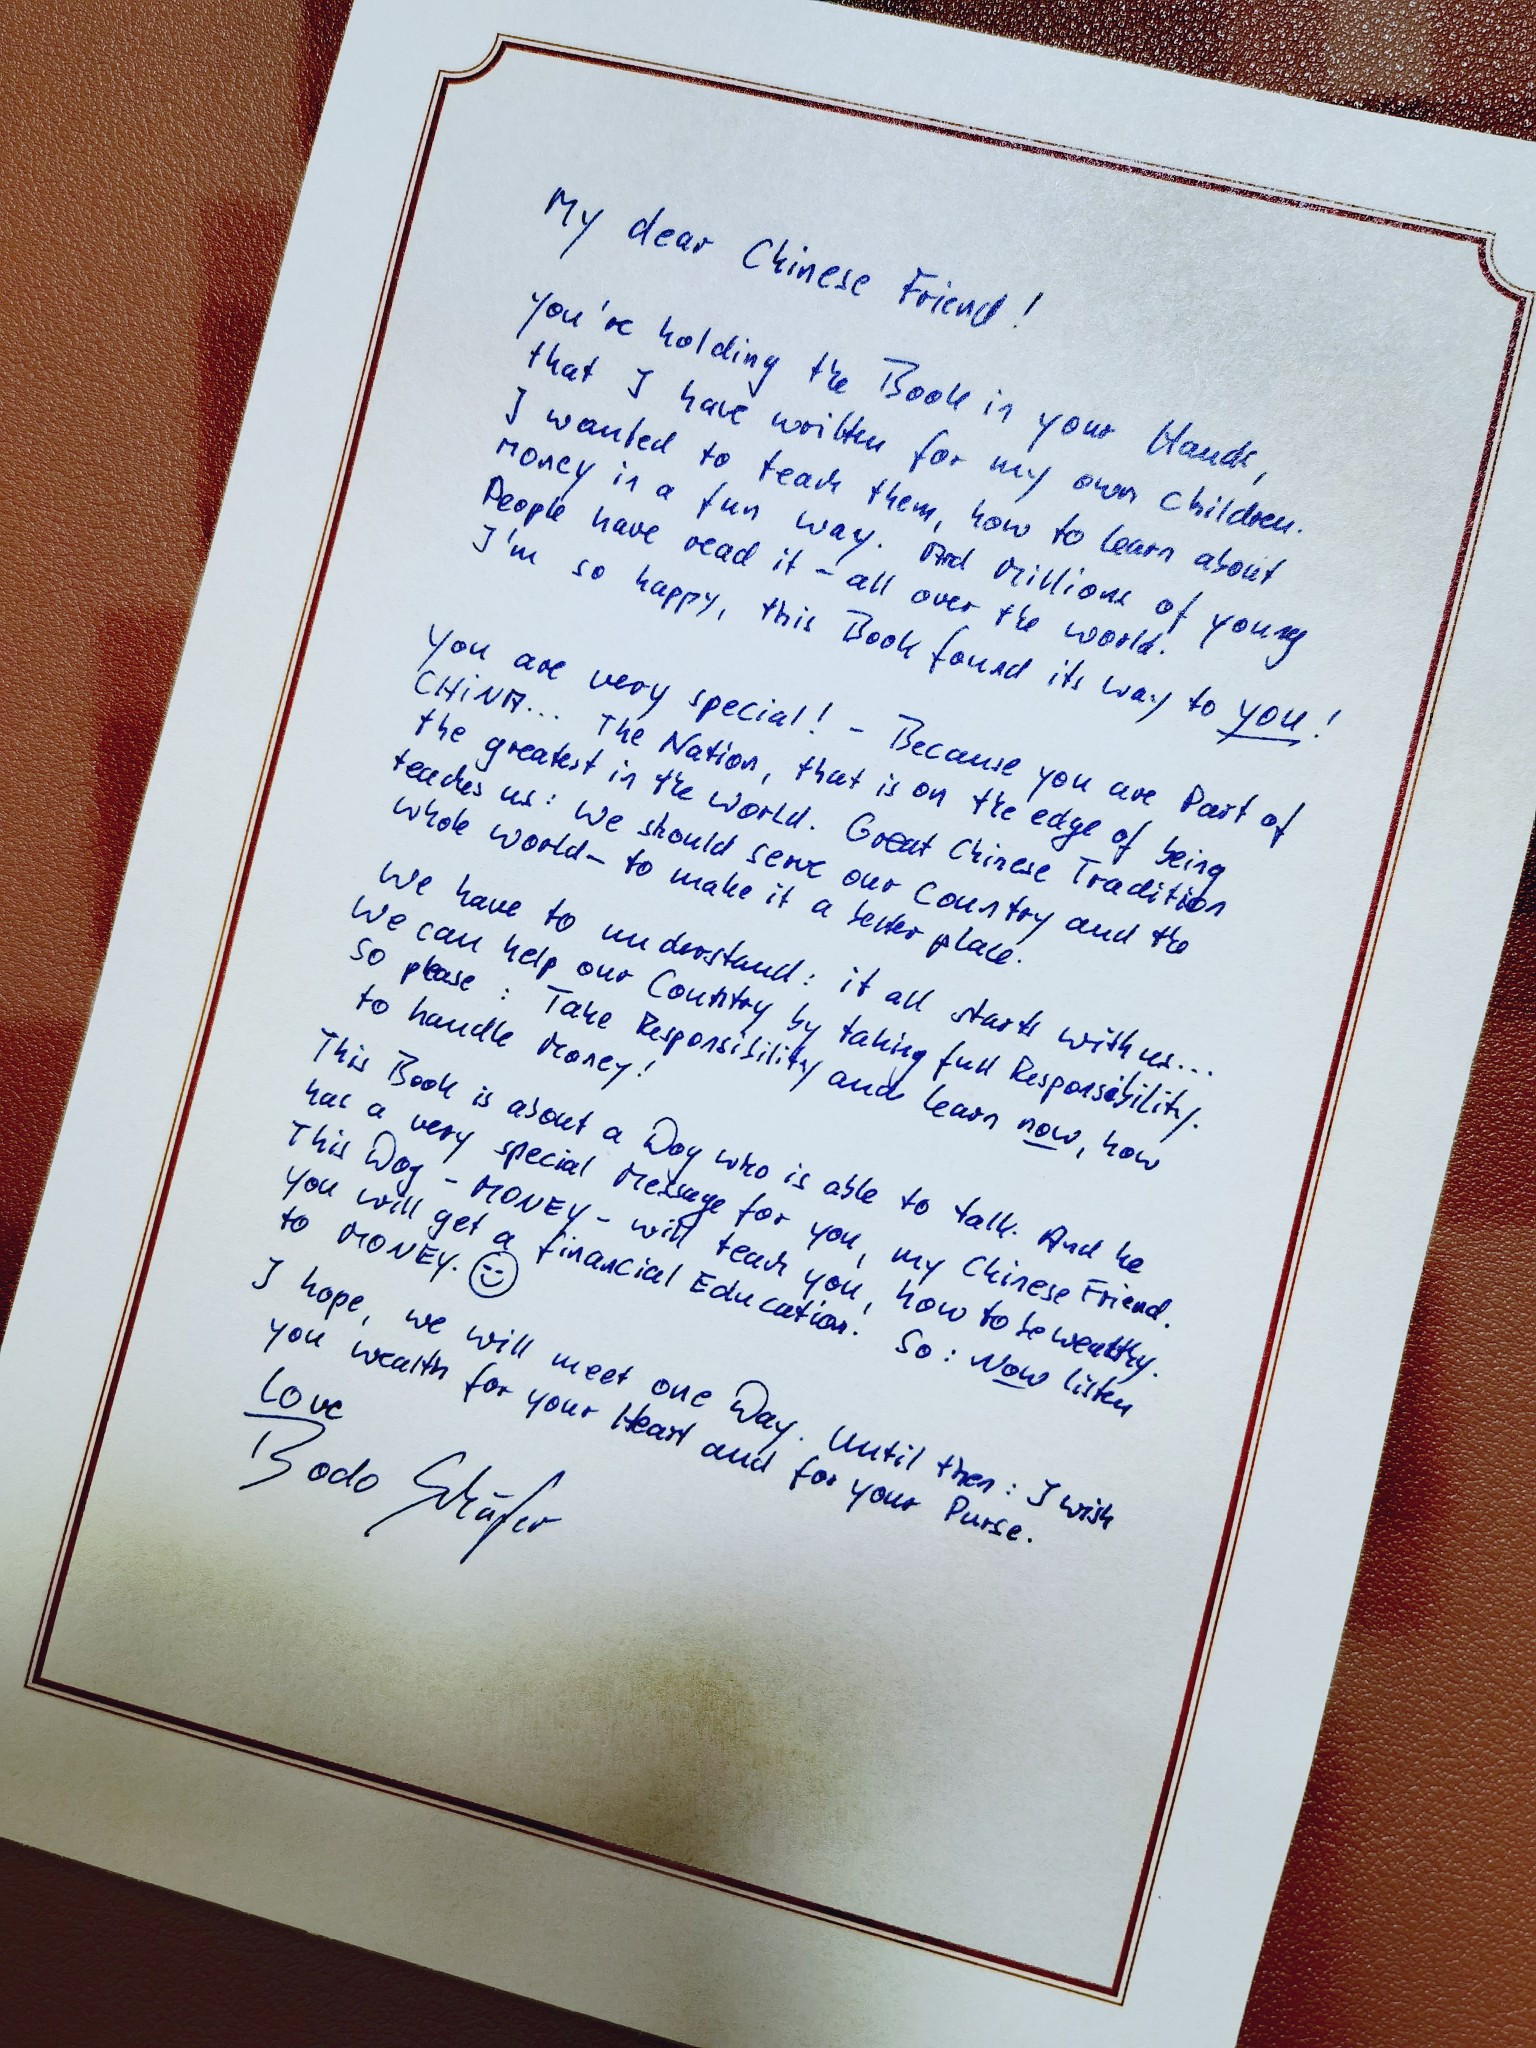 My dear Chinese Friend!
you're holding the Book in your Hands,
that I have written for my own children.
I wanted to teach them, how to learn about
Money in a fun way. And Millions of young
People have read it - all over the world.
I'm so happy, this Book found its way to you!
You are very special! - Because you are Part of
CHINA... The Nation, that is on the edge of being
the greatest in the world. Great Chinese Tradition
teaches us: we should serve our Country and the
whole world - to make it a better place.
We have to understand: it all starts with us...
We can help our Country by taking full Responsibility.
So please: Take Responsibility and learn now, how
to handle Money!
This Book is about a Dog who is able to talk. And he
has a very special Message for you, my Chinese Friend.
This Dog - MONEY - will teach you, how to be wealthy.
You will get a financial Education. So: Now listen
to MONEY.
I hope, we will meet one Day. Until then: I wish
you wealth for your Heart and for your Purse.
Love
Bodo Schäfer